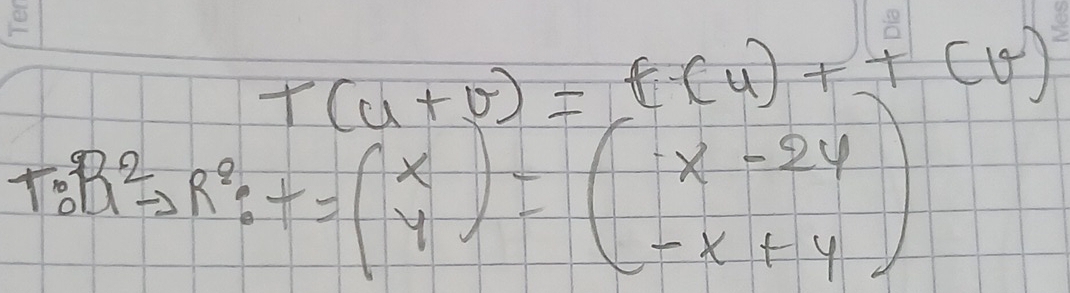 Ter Día Mes
T(u+v) = t(u) + T(v)
T:R²→R²: t=(x y) = (-x - 2y -x + y)